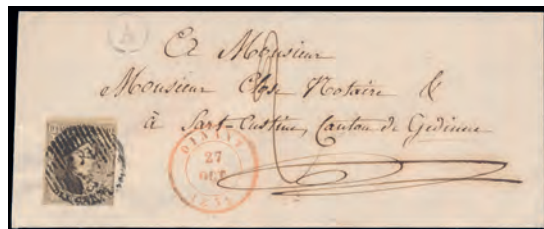 A
A Monsieur
Monsieur Close Notaire &
à Sart-Custine, Canton de Gedinne
DINANT
27
OCT